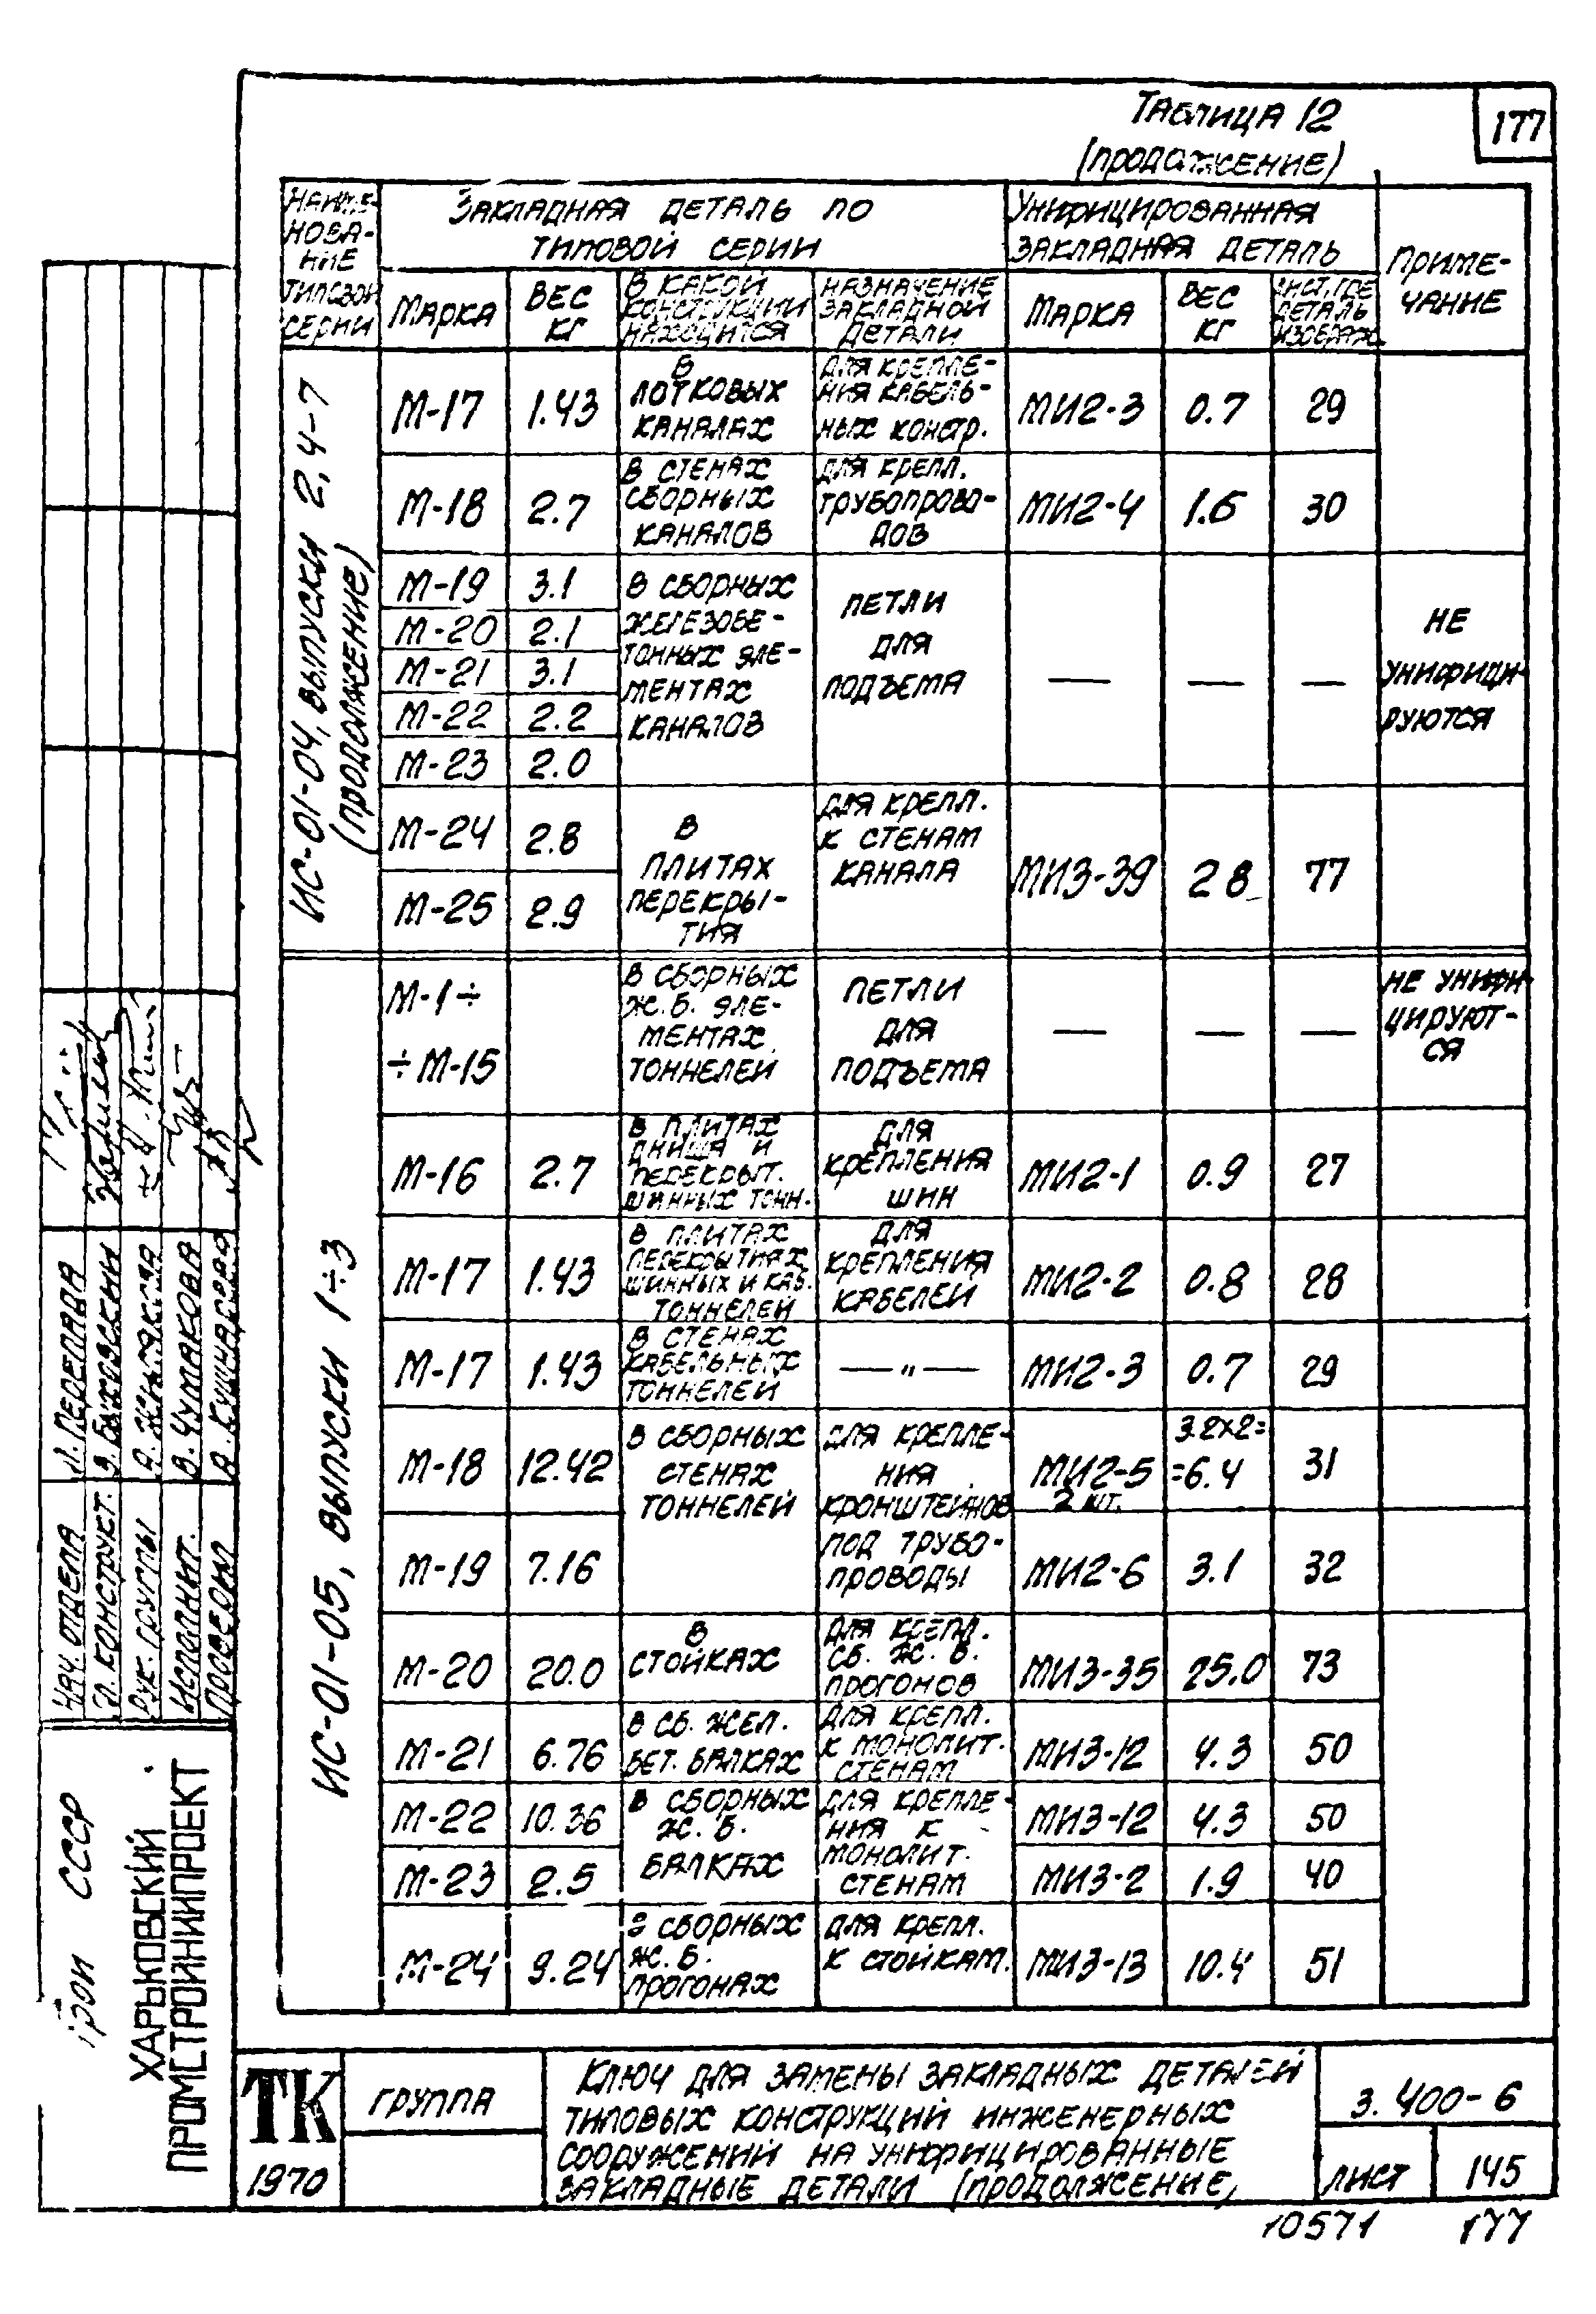 Таблица 12
177
(продолжение)
Наиме-
нова-
ние
типовой
серии
Закладная деталь по
типовой серии
Унифицированная
закладная деталь
Приме-
чание
Марка
Вес
кг
В какой
конструкции
находится
Назначение
закладной
детали
Марка
Вес
кг
Лист, где
деталь
изображ.
ИС-01-04, выпуски 2,4-7
(продолжение)
М-17 1.43
в
лотковых
каналах
для крепле-
ния кабель-
ных констр.
МИ2-3 0.7 29
М-18 2.7
в стенах
сборных
каналов
для крепл.
трубопрово-
дов
МИ2-4 1.6 30
М-19 3.1
М-20 2.1
М-21 3.1
М-22 2.2
М-23 2.0
в сборных
железобе-
тонных эле-
ментах
каналов
петли
для
подъема
— — —
не
унифици-
руются
М-24 2.8
М-25 2.9
в
плитах
перекры-
тия
для крепл.
к стенам
канала
МИ3-39 2 8 77
ИС-01-05, выпуски 1÷3
М-1÷
÷М-15
в сборных
ж.б. эле-
ментах
тоннелей
петли
для
подъема
— — —
не унифи-
цируют-
ся
М-16 2.7
в плитах
днища и
перекрыт.
шинных тонн.
для
крепления
шин
МИ2-1 0.9 27
М-17 1.43
в плитах
перекрытиях
шинных и каб.
тоннелей
для
крепления
кабелей
МИ2-2 0.8 28
М-17 1.43
в стенах
кабельных
тоннелей
— " —
МИ2-3 0.7 29
М-18 12.42
в сборных
стенах
тоннелей
для крепле-
ния
кронштейнов
под трубо-
проводы
МИ2-5
2 шт.
3.2×2=
=6.4
31
М-19 7.16
МИ2-6 3.1 32
М-20 20.0
в
стойках
для крепл.
сб. ж. б.
прогонов
МИ3-35 25.0 73
М-21 6.76
в сб. жел.
бет. балках
для крепл.
к монолит.
стенам
МИ3-12 4.3 50
М-22 10.36
М-23 2.5
в сборных
ж. б.
балках
для крепле-
ния к
монолит.
стенам
МИ3-12 4.3 50
МИ3-2 1.9 40
М-24 9.24
в сборных
ж. б.
прогонах
для крепл.
к стойкам.
МИ3-13 10.4 51
Нач. отдела Л. Перепада
Гл. конструкт. З. Быховский
Рук. группы
Исполнит. В. Чумакова
Проверил
СССР
Харьковский
ПРОМСТРОЙНИИПРОЕКТ
ТК
1970
группа
Ключ для замены закладных деталей
типовых конструкций инженерных
сооружений на унифицированные
закладные детали (продолжение)
3.400-6
лист 145
10571 177